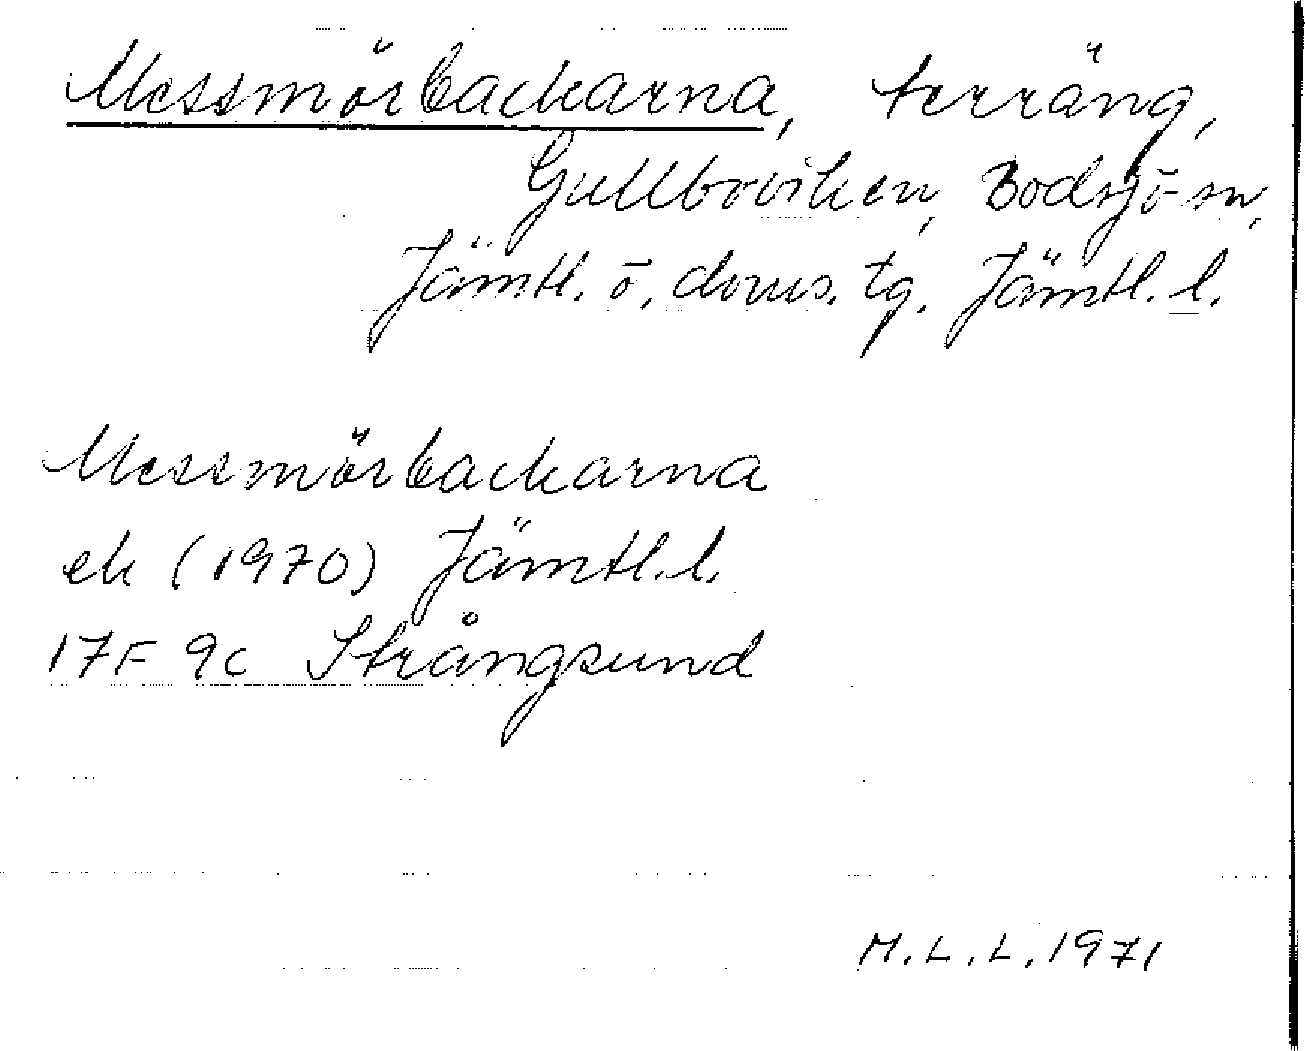 Messmörbackarna, terräng,
Gullboviken, Bodsjö sn,
Jämtl. ö. doms. tg. Jämtl. l.
Messmörbackarna
ek (1970) Jämtl. l.
17F 9c Strångsund
M.L.L. 1971